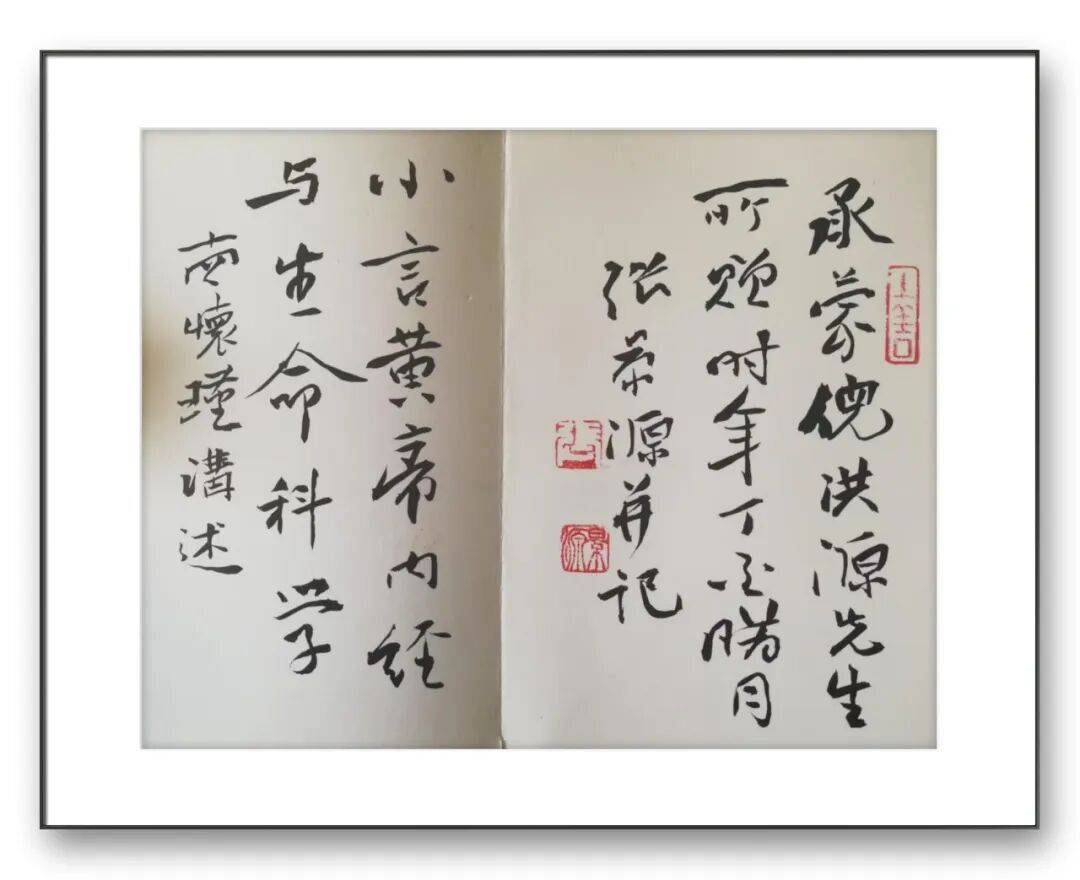 承蒙倪洪源先生
所赠时年丁亥腊月
张景源并记
小言黄帝内经
与生命科学
南懷瑾講述